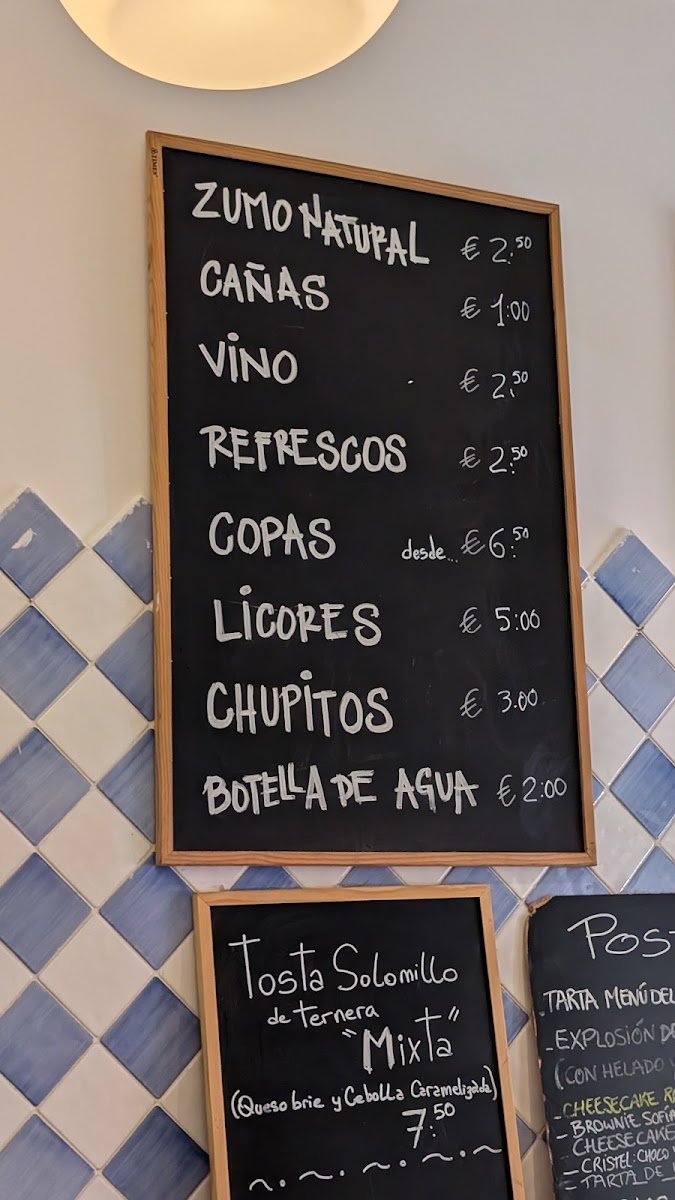 ZUMO NATURAL € 2.50
CAÑAS € 1:00
VINO € 2.50
REFRESCOS € 2.50
COPAS desde... € 6.50
LICORES € 5:00
CHUPITOS € 3.00
BOTELLA DE AGUA € 2:00
Tosta Solomillo
de Ternera
"Mixta"
(Queso brie y Cebolla Caramelizada)
7.50
POS
TARTA MENÚ DEL
- EXPLOSIÓN DE
(CON HELADO
- CHEESECAKE
- BROWNIE SOFÍA
CHEESECAKE
- CRISTEL: CHOCO
- TARTA DE